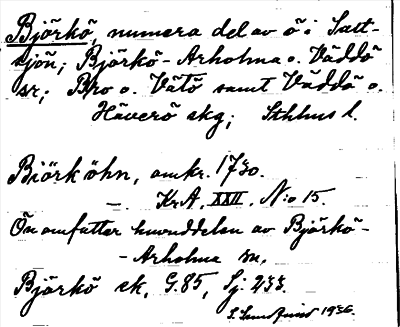 Björkö, numera del av ö i Salt-
sjön; Björkö-Arholma o. Väddö
sr; Bro o. Vätö samt Väddö o.
Häverö skg; Sthlms l.
Biörköhn, omkr. 1730.
—. KrA, XXII, N:o 15.
Ön omfattar huvuddelen av Björkö-
-Arholma sn,
Björkö ek, G.85, Sj: 233.
1936.